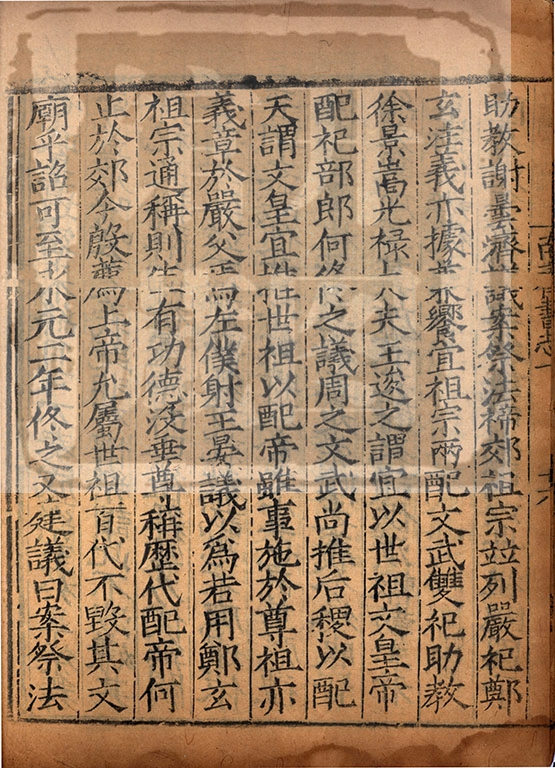 助教謝曇濟議案祭法禘郊祖宗並列嚴祀鄭
玄注義亦據兼饗宜祖宗兩配文武雙祀助教
徐景嵩光祿大夫王逡之謂宜以世祖文皇帝
配祀部郎何佟之議周之文武尚推后稷以配
天謂文皇宜推世祖以配帝雖事施於尊祖亦
義章於嚴父焉左僕射王晏議以爲若用鄭玄
祖宗通稱則生有功德沒垂尊稱歷代配帝何
止於郊今殷薦上帝允屬世祖百代不毀其文
廟乎詔可至永元二年佟之又建議曰案祭法